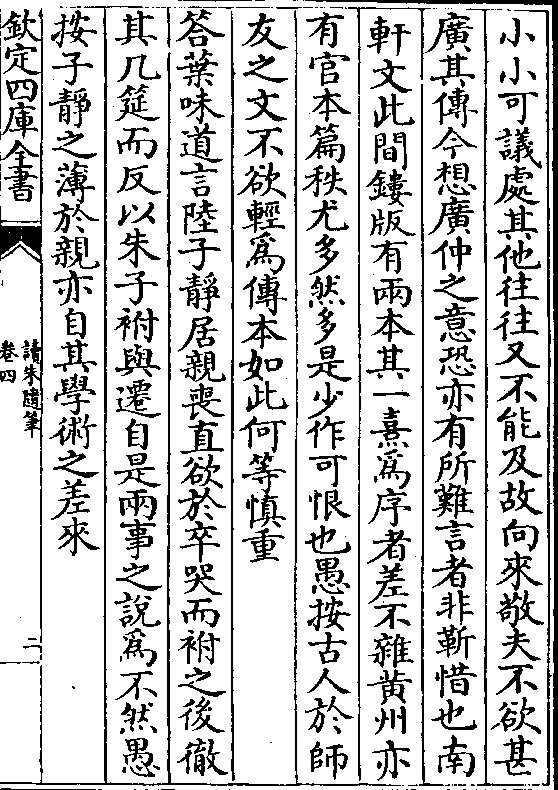 小小可議處其他往往又不能及故向來敬夫不欲甚
廣其傳今想廣仲之意恐亦有所難言者非靳惜也南
軒文此間鏤版有兩本其一熹為序者差不雜黄州亦
有官本篇秩尤多然多是少作可恨也愚按古人於師
友之文不欲輕為傳本如此何等慎重
答葉味道言陸子靜居親喪直欲於卒哭而祔之後徹
其几筵而反以朱子祔與遷自是兩事之說為不然愚
按子靜之薄於親亦自其學術之差來
欽定四庫全書
讀朱隨筆
卷四
二